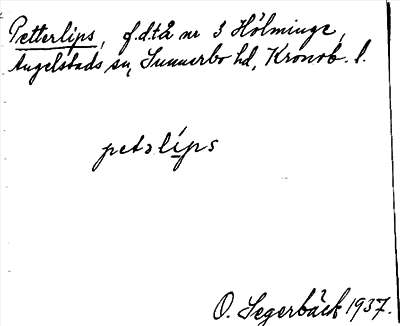 Petterlips, f.d.tå nr 3 Hölminge,
Angelstads sn, Sunnerbo hd, Kronob. l.
petəlíps
O. Segerbäck 1937.